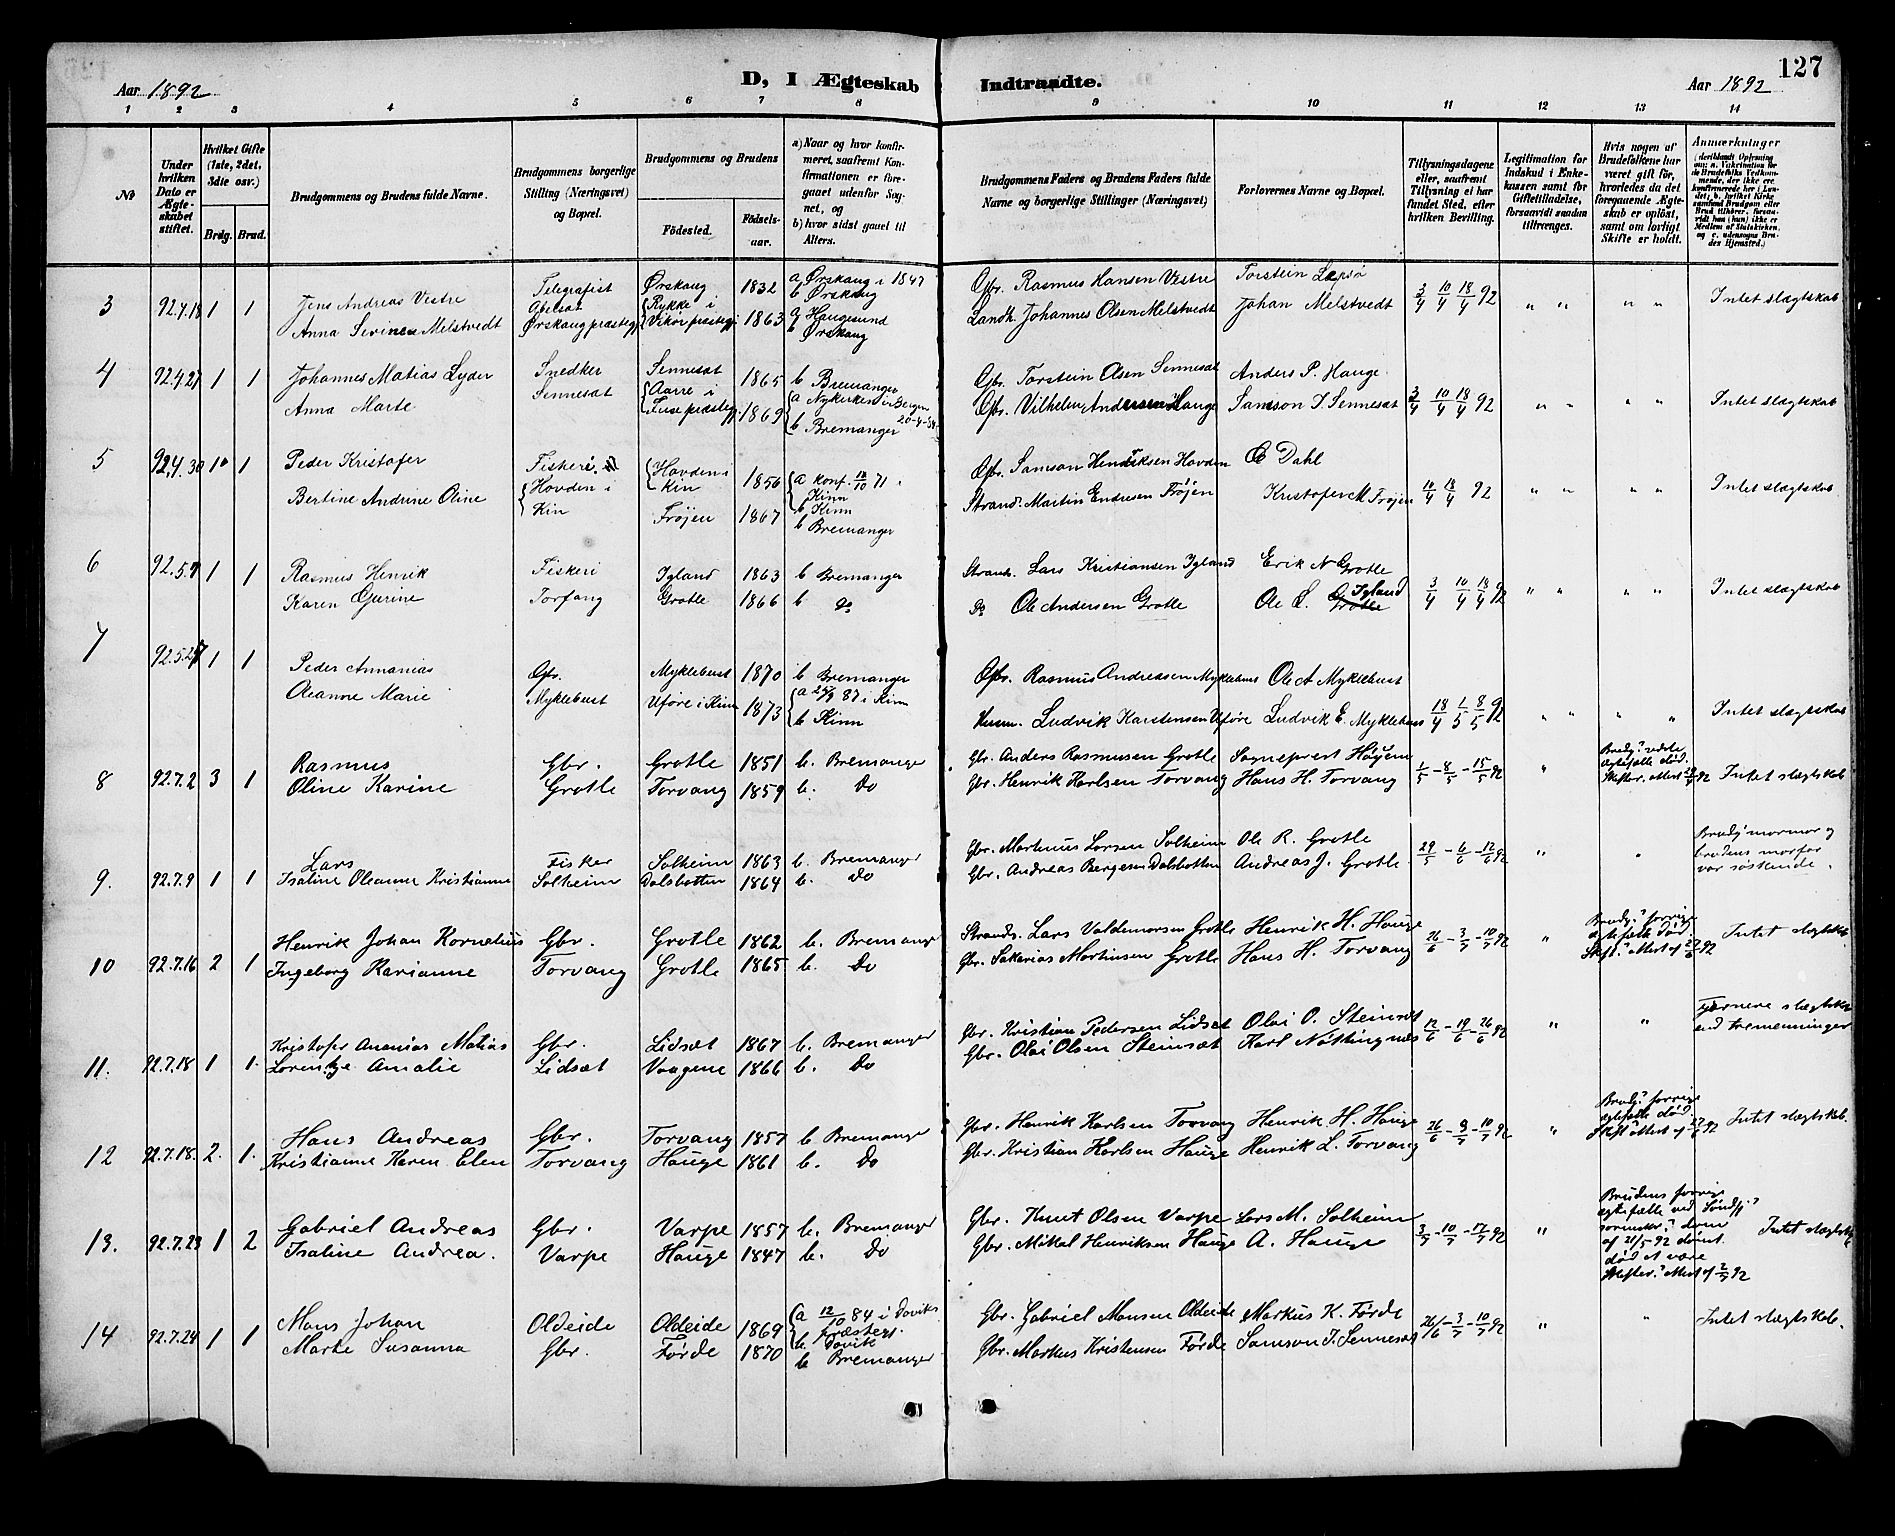 127
D, I Ægteskab Indtraadte.
Aar 1892
Aar 1892
1 2 3 4 5 6 7 8 9 10 11 12 13 14
No
Under hvilken Dato er Ægteskabet stiftet.
Hvilket Gifte (1ste, 2det, 3die osv.)
Brdg. Brud.
Brudgommens og Brudens fulde Navne.
Brudgommens borgerlige Stilling (Næringsvei) og Bopæl.
Brudgommens og Brudens
Födested.
Födselsaar.
a) Naar og hvor konfirmeret, saafremt Konfirmationen er foregaaet udenfor Sognet, og
b) hvor sidst gaaet til Alters.
Brudgommens Faders og Brudens Faders fulde Navne og borgerlige Stillinger (Næringsvei)
Forlovernes Navne og Bopæl.
Tillysningsdagene eller, saafremt Tillysning ei har fundet Sted, efter hvilken Bevilling.
Legitimation for Indskud i Enkekassen samt for Giftetilladelse, forsaavidt saadan tiltrænges.
Hvis nogen af Brudefolkene har været gift för, hvorledes da det foregaaende Ægteskab er oplöst, samt om lovligt Skifte er holdt.
Anmærkninger
3 92.4.18 1 1 Jens Andreas Vestre Telegrafist Ørskaug 1832 a Ørskaug i 1847 Gbr. Rasmus Hansen Vestre Torstein Lepsö 3/4 10/4 18/4 92 " " " " Intet slægtskab
Anna Sevinea Melstvedt Apelsæt Ørskaug præstegj. Rykke i Vikör præstegj. 1863 b Ørskaug a Haugesund b Ørskaug Landh. Johannes Olsen Melstvedt Johan Melstvedt
4 92.4.27 1 1 Johannes Matias Lyder Snedker Sennesæt 1865 b Bremanger Gbr. Torstein Olsen Sennesæt Anders P. Hauge
Anna Marte Sennesæt Aarre i Fuse præstegj. 1869 a Nykirken i Bergen b Bremanger Gbr. Vilhelm Andersen Hauge Samson I. Sennesæt 3/4 10/4 18/4 92 " " " " Intet slægtskab
5 92.4.30 1 1 Peder Kristofer Fiskeri Hovden i Kin 1856 a konf. 71 Kinn b Kinn Gbr. Samson Henriksen Hovden O Dahl
Bertine Andrine Oline Hovden i Kin Fröjen 1867 b Bremanger Strand. Martin Endresen Fröjen Kristofer M Fröjen 10/4 18/4 92 " " " " Intet slægtskab
6 92.5.7 1 1 Rasmus Henrik Fiskeri Igland 1863 b Bremanger Strands. Lars Kristiansen Igland Erik N Grotle
Karen Gurine Torfang Grotle 1866 b do Do Ole Andersen Grotle Ole L. Igland 3/4 10/4 18/4 92 " " " " Intet slægtskab
7 92.5.27 1 1 Peder Annanias Gbr. Myklebust 1870 b Bremanger Gbr. Rasmus Andreasen Myklebust Ole A Myklebust
Oleanne Marie Myklebust Uföre i Kinn 1873 a 87 i Kinn b Kinn Ludvik Karstensen Uföre Ludvik E. Myklebust 18/4 1/5 8/5 92 " " " " Intet slægtskab
8 92.7.2 3 1 Rasmus Gbr. Grotle 1851 b. Bremanger Gbr. Anders Rasmusen Grotle Sogneprest Höyem
Oline Karine Grotle Torvang 1859 b. Do Gbr. Henrik Karlsen Torvang Hans H. Torvang 1/5 - 8/5 - 15/5 92 " ægtefælle död. Intet slægtskab
9. 92.7.9 1 1 Lars Fisker Solheim 1863 b. Bremanger Gbr. Martinus Larsen Solheim Ole R. Grotle
Isaline Oleanne Kristianne Solheim Dalsbotten 1864 b. Do Gbr. Andreas Bergesen Dalsbotten Andreas J. Grotle 29/5 - 6/6 - 12/6 92 " " Brudg. mormor og brudens morfar var söskende.
10 92.7.16 2 1 Henrik Johan Kornelius Gbr. Grotle 1862 b. Bremanger Strands. Lars Valdemarsen Grotle Henrik H. Hauge
Ingeborg Karianne Torvang Grotle 1865 b. Do Gbr. Sakarias Martinsen Grotle Hans H. Torvang 26/6 - 3/7 - 10/7 92 " Brudg. forrige ægtefælle död. Intet slægtskab.
11. 92.7.18 1 1. Kristofer Ananias Matias Gbr. Lidsæt 1867 b. Bremanger Gbr. Kristian Pedersen Lidsæt Olai O. Steinsæt
Lorentze Amalie Lidsæt Vaagene 1866 b. Do Gbr. Olai Olsen Steinsæt Karl Nöttingnæs 12/6 - 19/6 - 26/6 92 " " Fjernere slægtskab end tremenninger
12 92.7.18. 2. 1. Hans Andreas Gbr. Torvang 1857 b. Bremanger Gbr. Henrik Karlsen Torvang Henrik H. Hauge
Kristianne Karen Elen Torvang Hauge 1861 b. Do Gbr. Kristian Karlsen Hauge Henrik L. Torvang 26/6 - 3/7 - 10/7 92 " Brudg. forrige ægtefælle död. Intet slægtskab.
13. 92.7.23 1 2 Gabriel Andreas Gbr. Varpe 1857 b. Bremanger Gbr. Knut Olsen Varpe Lars M. Solheim
Isaline Andrea. Varpe Hauge 1847 b. Do Gbr. Mikal Henriksen Hauge A. Hauge 3/7 - 10/7 - 17/7 92 " Brudens forrige ægtefælle ved dom af 21/5 92 dömt död at være Intet slægtsk.
14 92.7.24 1 1 Mons Johan Oldeide Oldeide 1869 a 12/10 84 i Davik præstegj. b. Davik Gbr. Gabriel Monsen Oldeide Markus K. Förde
Marte Susanna Gbr. Förde 1870 b. Bremanger Gbr. Markus Kristensen Förde Samson I. Sennesæt 26/6 - 3/7 - 10/7 92 " " Intet slægtskab.